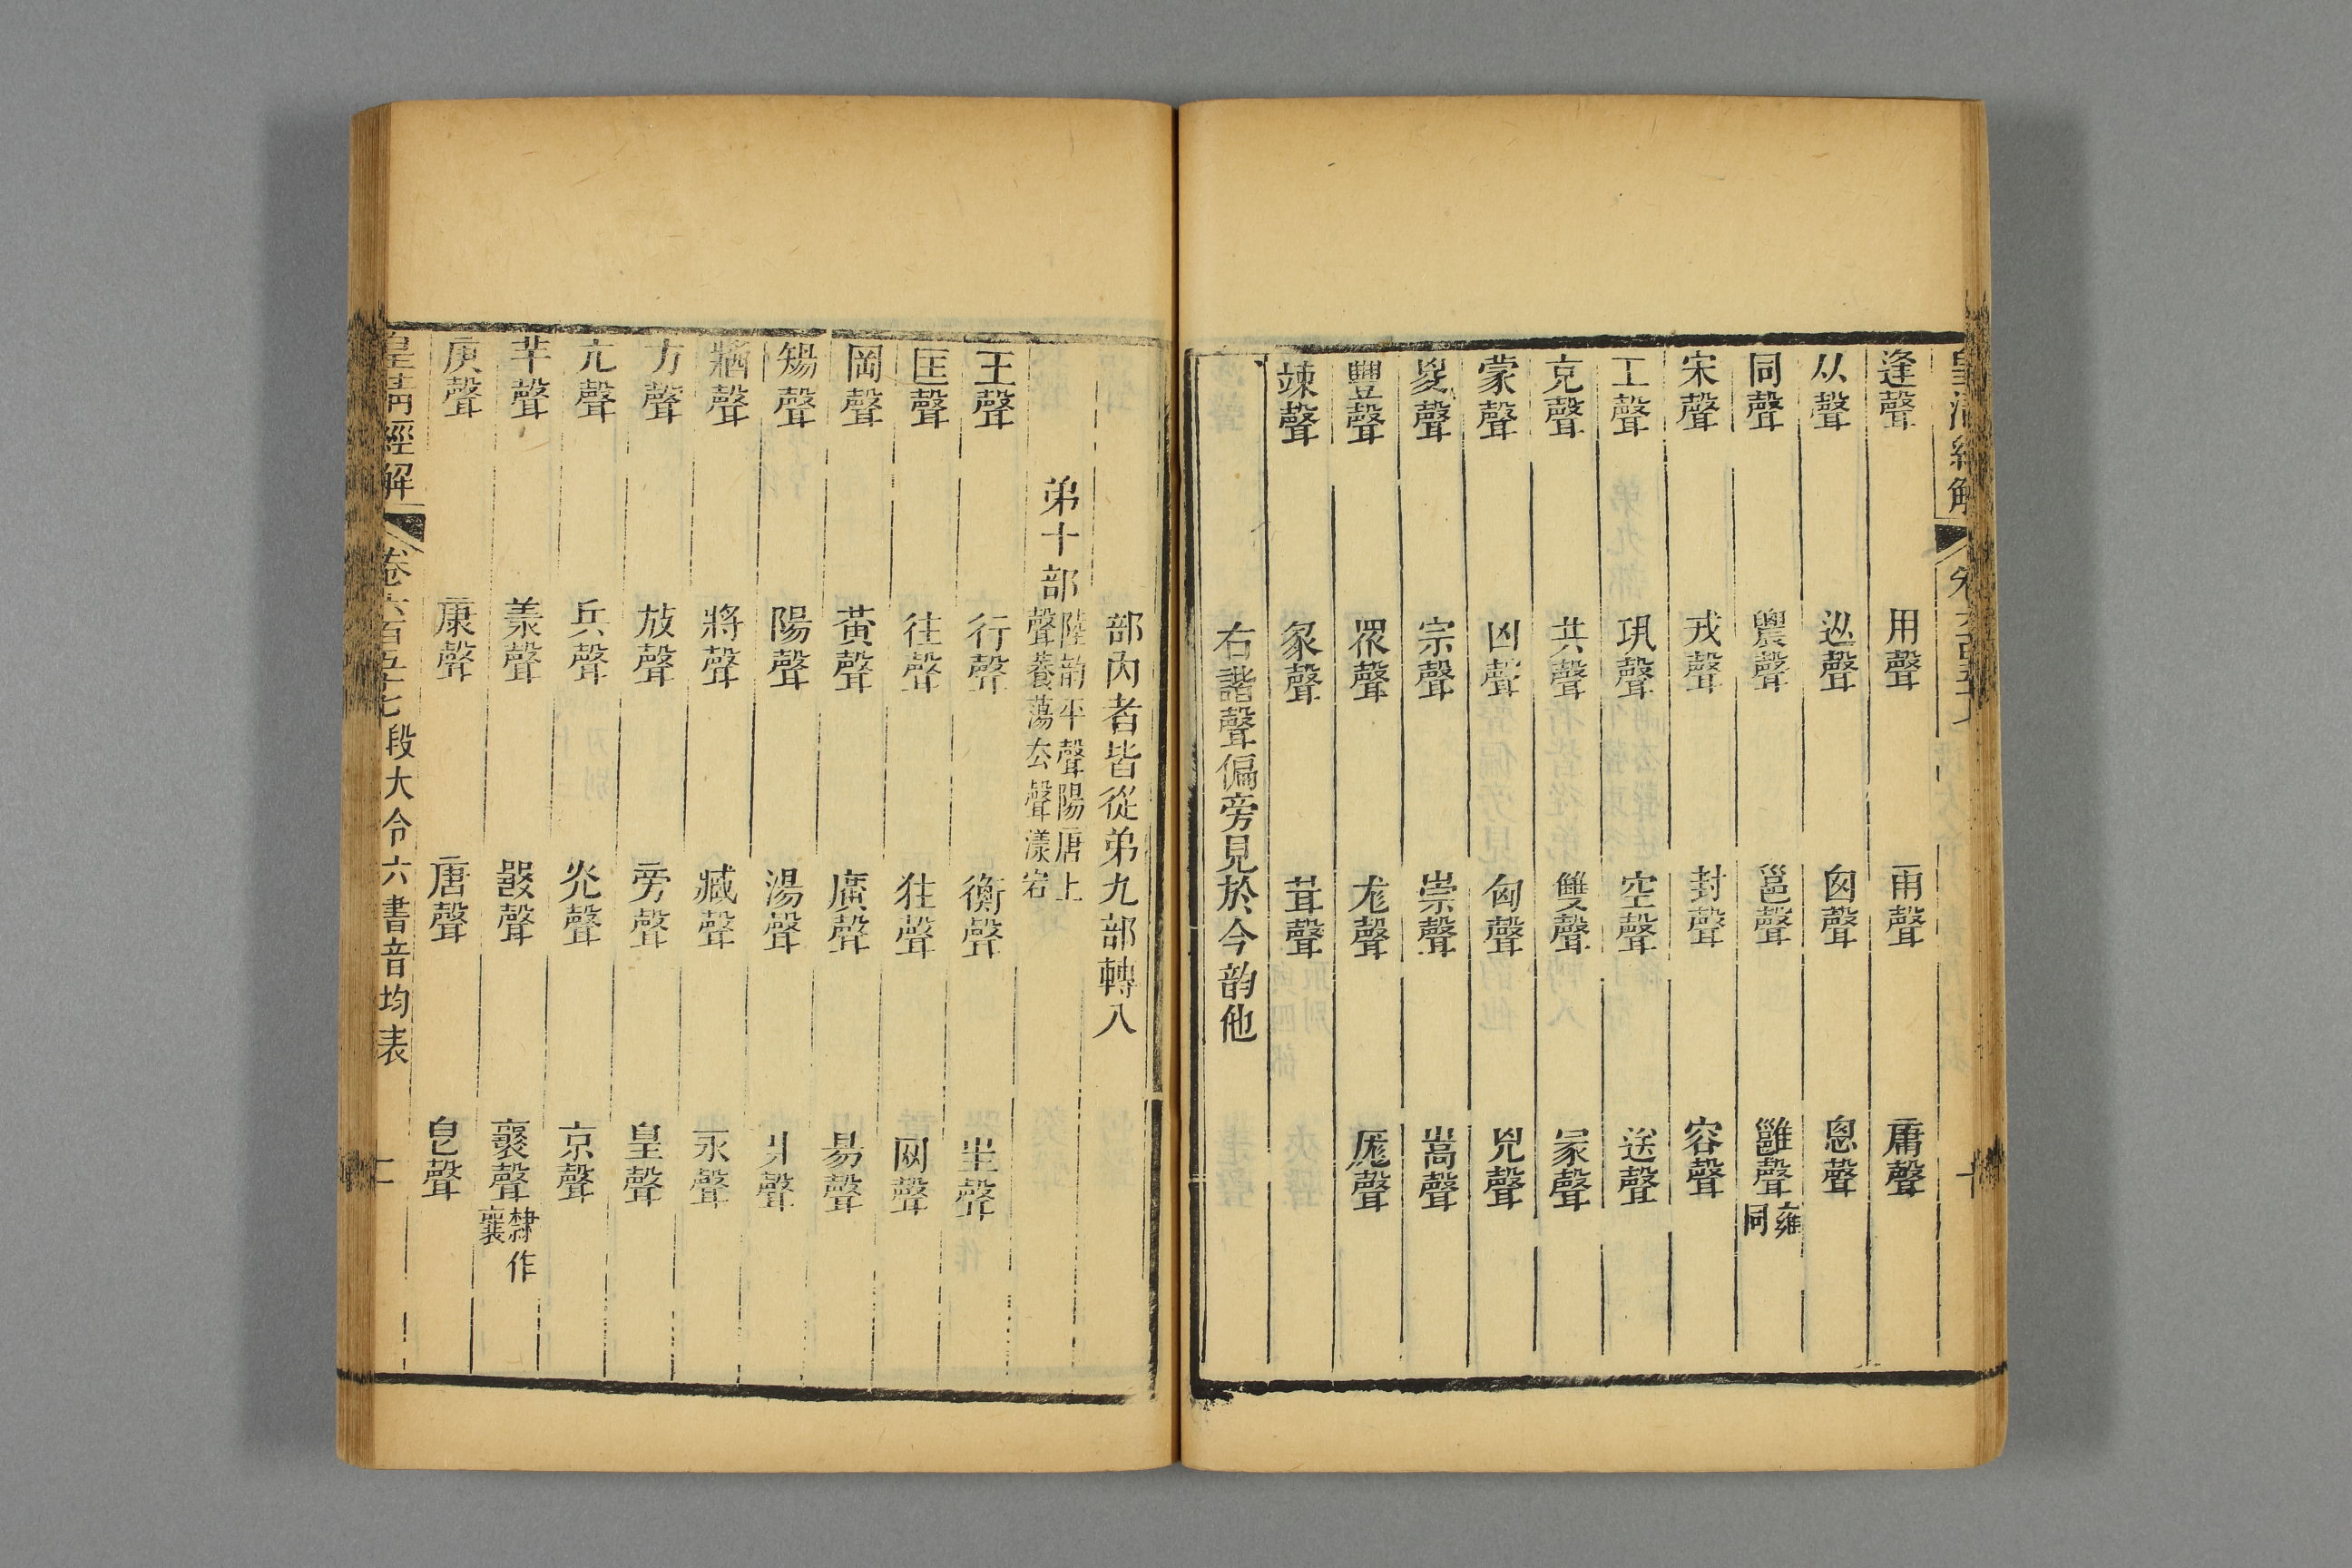 皇清經解 卷六百五十七 十
逢聲 用聲 甬聲 庸聲
从聲 巡聲 囪聲 悤聲
同聲 農聲 邕聲 雝聲雍同
宋聲 戎聲 封聲 容聲
工聲 巩聲 空聲 送聲
充聲 共聲 雙聲 冡聲
蒙聲 凶聲 匈聲 兇聲
㚇聲 宗聲 崇聲 嵩聲
豐聲 眾聲 尨聲 厖聲
竦聲 彖聲 茸聲
右諧聲偏旁見於今韵他
部內者皆從弟九部轉入
弟十部陸韵平聲陽唐上聲養蕩去聲漾宕
王聲 行聲 衡聲 㞷聲
匡聲 往聲 狂聲 网聲
岡聲 黃聲 廣聲 昜聲
𥏻聲 陽聲 湯聲 爿聲
牆聲 將聲 臧聲 永聲
方聲 放聲 旁聲 皇聲
亢聲 兵聲 光聲 京聲
羊聲 羕聲 𤕦聲 襄聲隸作襄
庚聲 康聲 唐聲 皀聲
皇清經解 卷六百五十七 段大令六書音均表 十一